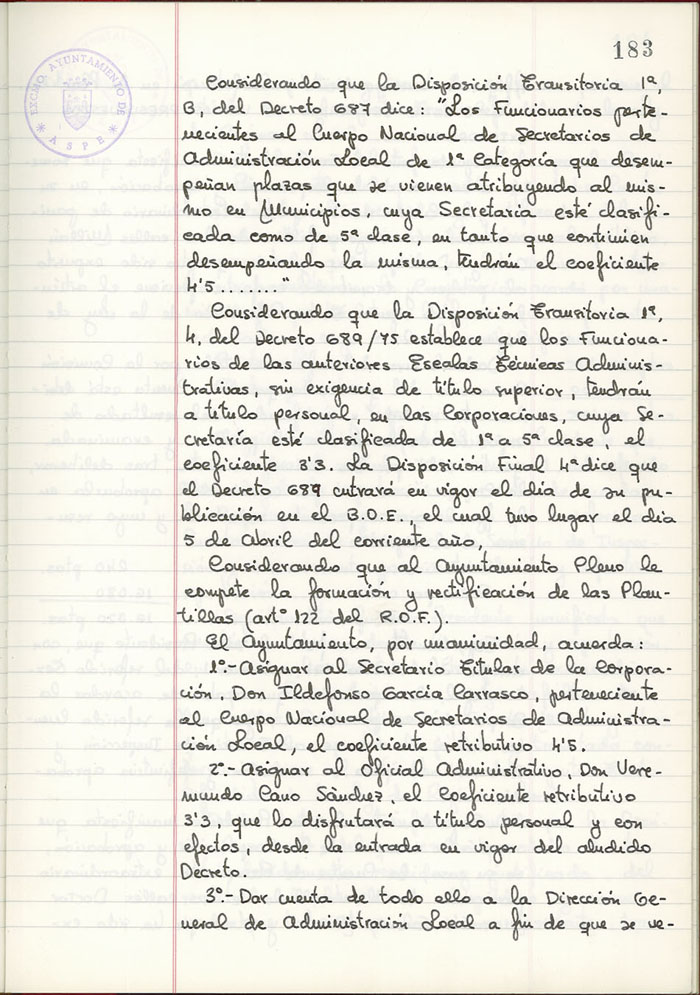 183
EXCMO. AYUNTAMIENTO DE
* ASPE *
Considerando que la Disposición Transitoria 1ª,
B, del Decreto 687 dice: "Los Funcionarios perte-
necientes al Cuerpo Nacional de Secretarios de
Administración Local de 1ª Categoría que desem-
peñan plazas que se vienen atribuyendo al mis-
mo en Municipios, cuya Secretaria esté clasifi-
cada como de 5ª clase, en tanto que continúen
desempeñando la misma, tendrán el coeficiente
4'5........"
Considerando que la Disposición Transitoria 1ª,
4, del Decreto 689/75 establece que los Funciona-
rios de las anteriores Escalas Técnicas Adminis-
trativas, sin exigencia de título superior, tendrán
a título personal, en las Corporaciones, cuya Se-
cretaría esté clasificada de 1ª a 5ª clase, el
coeficiente 3'3. La Disposición Final 4ª dice que
el Decreto 689 entrará en vigor el día de su pu-
blicación en el B.O.E., el cual tuvo lugar el día
5 de Abril del corriente año,
Considerando que al Ayuntamiento Pleno le
compete la formación y rectificación de las Plan-
tillas (artº 122 del R.O.F.).
El Ayuntamiento, por unanimidad, acuerda:
1º.- Asignar al Secretario Titular de la Corpora-
ción, Don Ildefonso García Carrasco, perteneciente
al Cuerpo Nacional de Secretarios de Administra-
ción Local, el coeficiente retributivo 4'5.
2º.- Asignar al Oficial Administrativo, Don Vere-
mundo Cano Sànchez, el Coeficiente retributivo
3'3, que lo disfrutará a título personal y con
efectos, desde la entrada en vigor del aludido
Decreto.
3º.- Dar cuenta de todo ello a la Dirección Ge-
neral de Administración Local a fin de que se ve-